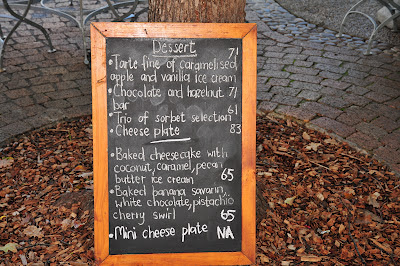 Dessert 71
• Tarte fine of caramelised
apple and vanilla ice cream
• Chocolate and hazelnut 71
bar
• Trio of sorbet selection 61
• Cheese plate 83
• Baked cheesecake with
coconut, caramel, pecan
butter ice cream 65
• Baked banana savarin,
white chocolate, pistachio
cherry swirl 65
• Mini cheese plate NA